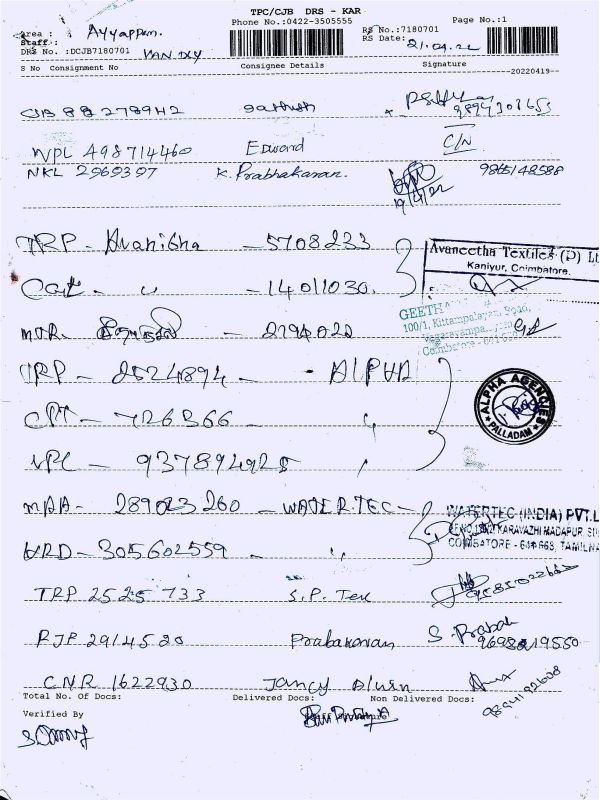 TPC/CJB DRS - KAR
Phone No.:0422-3505555 Page No.:1
Area : Ayyappan. RS No.:7180701
Staff : RS Date: 21.04.22
DRS No. :DCJB7180701 VAN.DLY
S No Consignment No Consignee Details Signature
20220419
CJB 88278942 Sathish 9894303653
WPL 498714460 Edward C/N
NKL 2969397 K. Prabhakaran. 19/4/22 9865148588
TRP - Avanitha - 5708233
Avaneetha Textiles (P) Lt
Kaniyur, Coimbatore.
- 14011030.
GEETHA
100/1, Kittampalayam Road,
MDR. - 2794022
Coimbatore - 641
TRP - 2524894 - ALPHA
CPT - 726366 "
ALPHA AGENCIES
PALLADAM
NPL - 937894925 "
MAA - 289023260 - WATER.TEC -
WATERTEC (INDIA) PVT.L
KARAVAZHI MADAPUR, SU
COIMBATORE - 641 668, TAMILNA
HRD - 305602559 - "
TRP 2525 733 S.P. Tex
RJP 2914520 Prabakaran S. Prabak 9698219550
CNR 1622930 Jancy Alwin
Total No. Of Docs: Delivered Docs: Non Delivered Docs:
Verified By